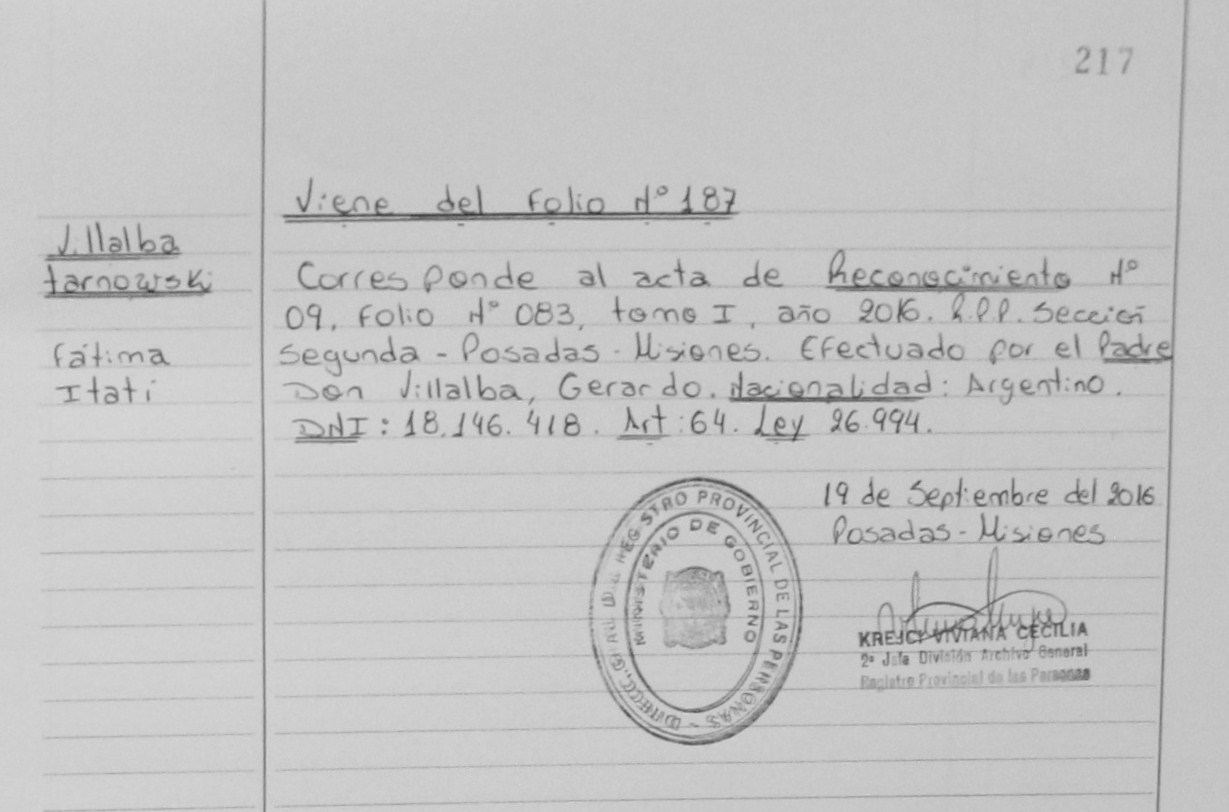 217
Viene del Folio N° 187
Villalba
Tarnowski
Fátima
Itatí
Corresponde al acta de Reconocimiento N°
09, Folio N° 083, tomo I, año 2016. R.P.P. Sección
Segunda - Posadas - Misiones. Efectuado por el Padre
Don Villalba, Gerardo. Nacionalidad: Argentino.
DNI: 18.146.418. Art: 64. Ley 26.994.
19 de Septiembre del 2016
Posadas - Misiones
DIRECC. GRAL DEL REGISTRO PROVINCIAL DE LAS PERSONAS -
MINISTERIO DE GOBIERNO
KREJCI VIVIANA CECILIA
2° Jefa División Archivo General
Registro Provincial de las Personas